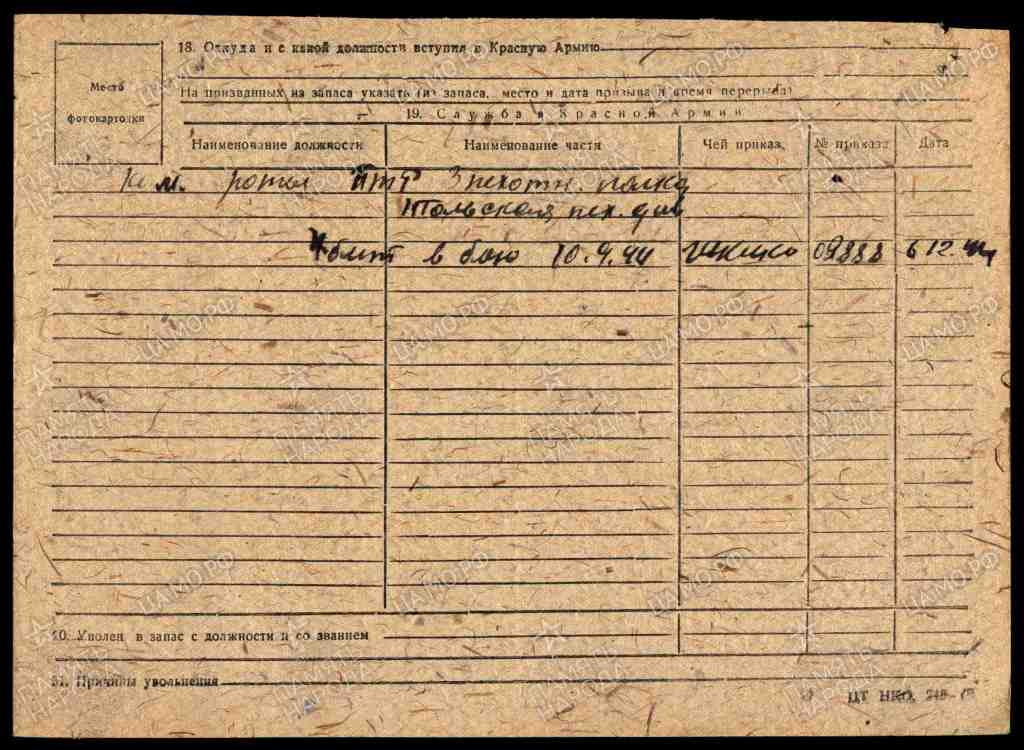 18. Откуда и с какой должности вступил в Красную Армию
Место
фотокарточки
На призванных из запаса указать (из запаса, место и дата призыва и время перерыва)
19. Служба в Красной Армии
Наименование должности
Наименование части
Чей приказ
№ приказа
Дата
Ком. роты ПТР 3 пехотн. полка
Польская пех. див
Убит в бою 10.9.44 09888 6 12. 44
20. Уволен в запас с должности и со званием
21. Причины увольнения
ЦТ НКО,
ПАМЯТЬ НАРОДА
ЦАМО.РФ